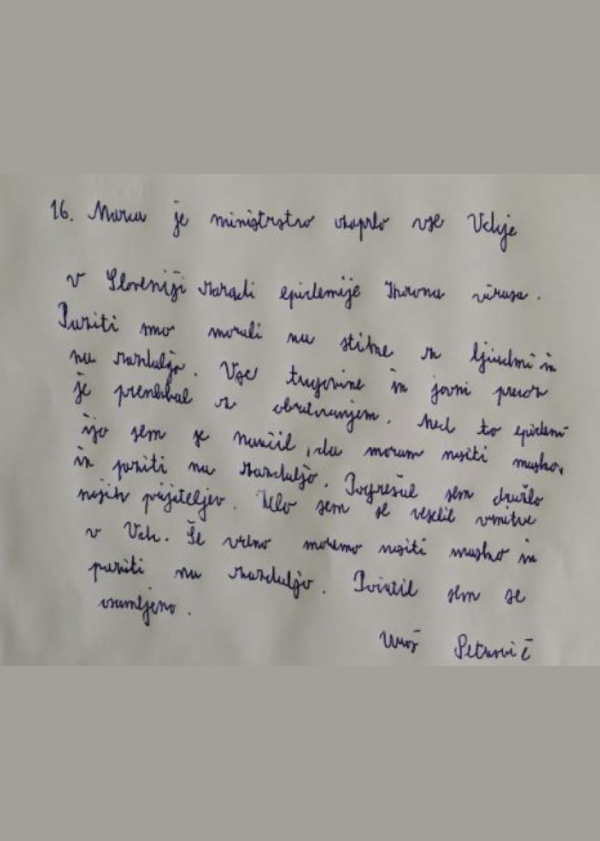 16. Marca je ministrstvo zaprlo vse Vdcje
v Sloveniji zaradi epidemije korona virusa.
Paziti smo morali na stike z ljudmi in
na razdaljo. Vse trgovine in javni prevoz
je prenehal z obratovanjem. Med to epidemi
ijo sem se naučil, da moram nositi masko,
in paziti na razdaljo. Pogrešal sem družbo
mojih prijateljev. Zelo sem se veselil vrnitve
v Vdc. Še vedno moremo nositi masko in
paziti na razdaljo. Počutil sem se
osamljeno.
Uroš Petrovič